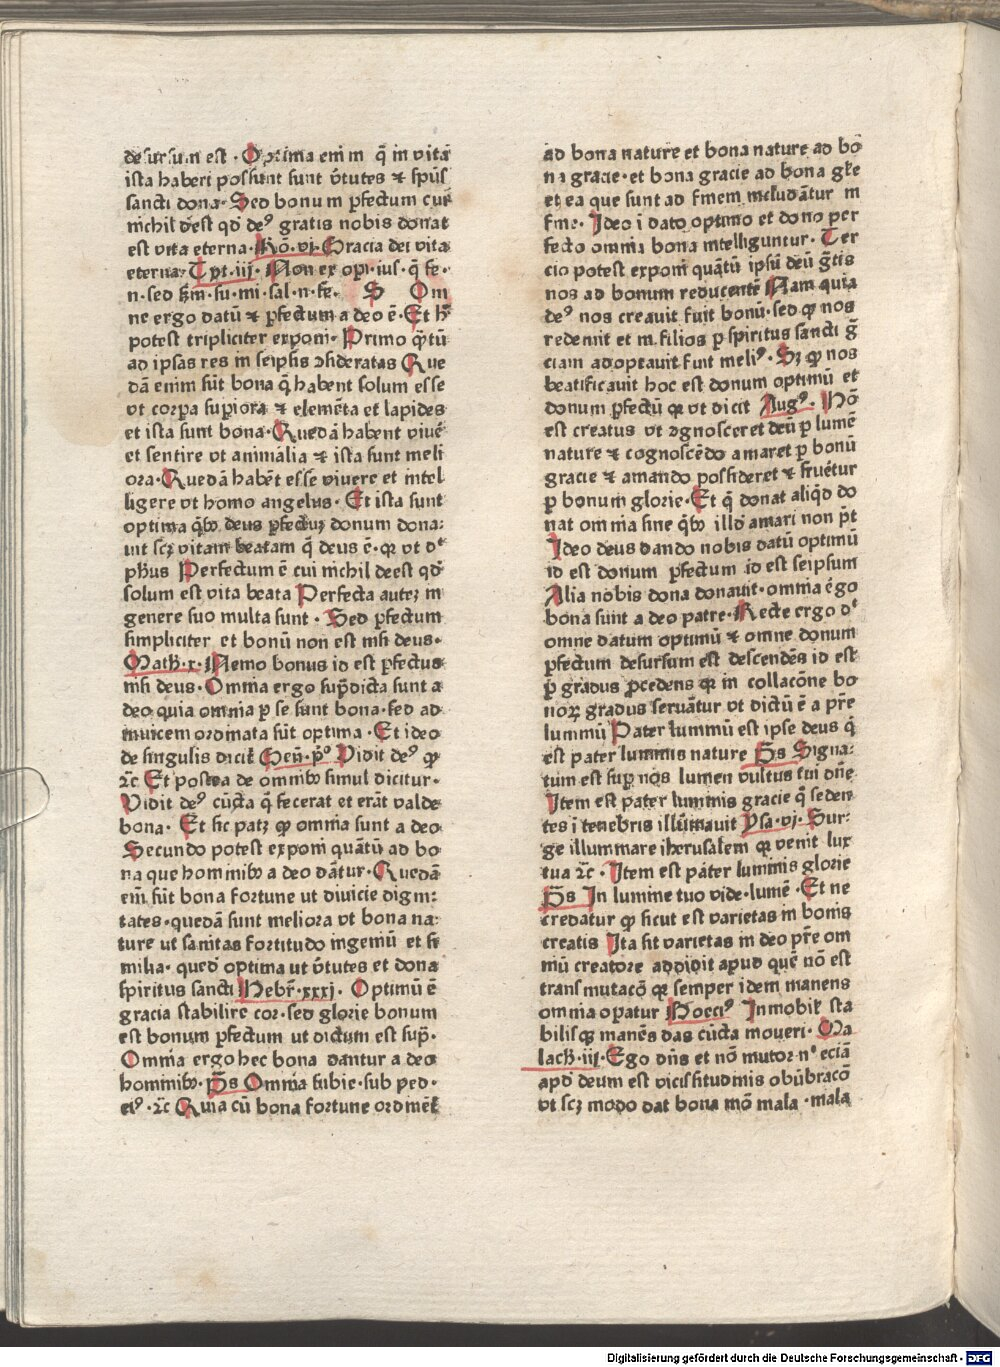 desursum est · Optima enim q̄ in vitā
ista haberi possunt sunt v̄tutes ⁊ spūs
sancti dona · Sed bonum ꝑfectum cui
nichil deest qd̄ deꝰ gratis nobis donat
est vita eterna · Ro̅ · vj · Gracia dei vita
eterna · Tyt · iij · Non ex opi · ius · q̄ fe ·
n · sed ẜm · su · mi · sal · n · fe · S Om
ne ergo datū ⁊ ꝑfectum a deo ē · Et h̄
potest tripliciter exponi · Primo q̄tū
ad ipsas res in seipsis ꝯsideratas Que
dā enim sūt bona q̄ habent solum esse
vt corꝑa suꝑiora ⁊ elemēta et lapides
et ista sunt bona · Quedā habent viuē
et sentire vt animalia ⁊ ista sunt meli
ora · Quedā habēt esse viuere et intel
ligere vt homo angelus · Et ista sunt
optima q̄bꝰ deus ꝑfectuꝫ donum dona:
uit scꝫ vitam beatam q̄ deus ē · qꝛ vt dᵗ
phꝰus Perfectum ē cui nichil deest qd̄
solum est vita beata Perfecta auteꝫ in
genere suo multa sunt · Sed ꝑfectum
simpliciter et bonū non est nisi deus ·
Math · x · Nemo bonus id est ꝑfectus
nisi deus · Omnia ergo sup̄dicta sunt a
deo quia omnia ꝑ se sunt bona · sed ad
inuicem ordinata sūt optima · Et ideo
de singulis dicit̄ Gen̄ · pͦ Vidit deꝰ ꝙ
⁊c̄ Et postea de omnibꝰ simul dicitur ·
Vidit deꝰ cūcta q̄ fecerat et erāt valde
bona · Et sic patꝫ ꝙ omnia sunt a deo
Secundo potest exponi quātū ad bo
na que hominibꝰ a deo dātur · Quedā
eni̅ sūt bona fortune ut diuicie digni:
tates · quedā sunt meliora vt bona na:
ture ut sanitas fortitudo ingeniū et si
milia · qued̄ optima ut v̄tutes et dona
spiritus sancti Hebr̄ · xxxj · Optimū ē
gracia stabilire cor · sed glorie bonum
est bonum ꝑfectum ut dictum est sup̄ ·
Omnia ergo hec bona dantur a deo
hominibꝰ · p̄s Omnia subie · sub ped ·
eiꝰ · ⁊c̄ Quia cū bona fortune ordinet̄
ad bona nature et bona nature ad bo
na gracie · et bona gracie ad bona gl̄e
et ea que sunt ad finem includātur in
fine · Ideo ī dato optimo et dono per
fecto omnia bona intelliguntur · Ter
cio potest exponi quātū ipsū deū g̅tis
nos ad bonum reducentē Nam quia
deꝰ nos creauit fuit bonū · sed ꝙ nos
redemit et in filios ꝑ spiritus sancti g̅
ciam adoptauit fuit meliꝰ · Sꝫ ꝙ nos
beatificauit hoc est donum optimū et
donum ꝑfectū qꝛ ut dicit Augꝰ · Hō
est creatus vt ꝯgnosceret deū ꝑ lumē
nature ⁊ cognoscēdo amaret ꝑ bonū
gracie ⁊ amando possideret ⁊ fruētur
ꝑ bonum glorie · Et q̄ donat aliq̄d do
nat omnia sine q̄bꝰ illd̄ amari non p̄t
Ideo deus dando nobis datū optimū
id est donum ꝑfectum id est seipsum
Alia nobis dona donauit · omnia ēgo
bona sunt a deo patre · Recte ergo dᵗ
omne datum optimū ⁊ omne donum
ꝑfectum desursum est descendēs id est
ꝑ gradus ꝓcedens qꝛ in collacōne bo
noꝝ gradus seruātur vt dictū ē a pr̄e
luminū Pater luminū est ipse deus q̄
est pater luminis nature p̄s Signa:
tum est suꝑ nos lumen vultus tui dn̄e
Item est pater luminis gracie q̄ seden
tes ī tenebris illūinauit Ysa · vj · Sur:
ge illuminare iherusalem qꝛ venit lux
tua ⁊c̄ · Item est pater luminis glorie
p̄s In lumine tuo vide · lumē · Et ne
credatur ꝙ sicut est varietas in bonis
creatis Ita sit varietas in deo pr̄e om
niū creatore addidit apud quē nō est
transmutacō qꝛ semper idem manens
omnia oꝑatur Boeciꝰ Inmobil̄ sta
bilisqꝫ manēs das cūcta moueri · Ma
lach · iij · Ego dn̄s et nō mutor · nᵉ eciā
apd̄ deum est vicissitudinis obūbracō
vt scꝫ modo dat bona mō mala · mala